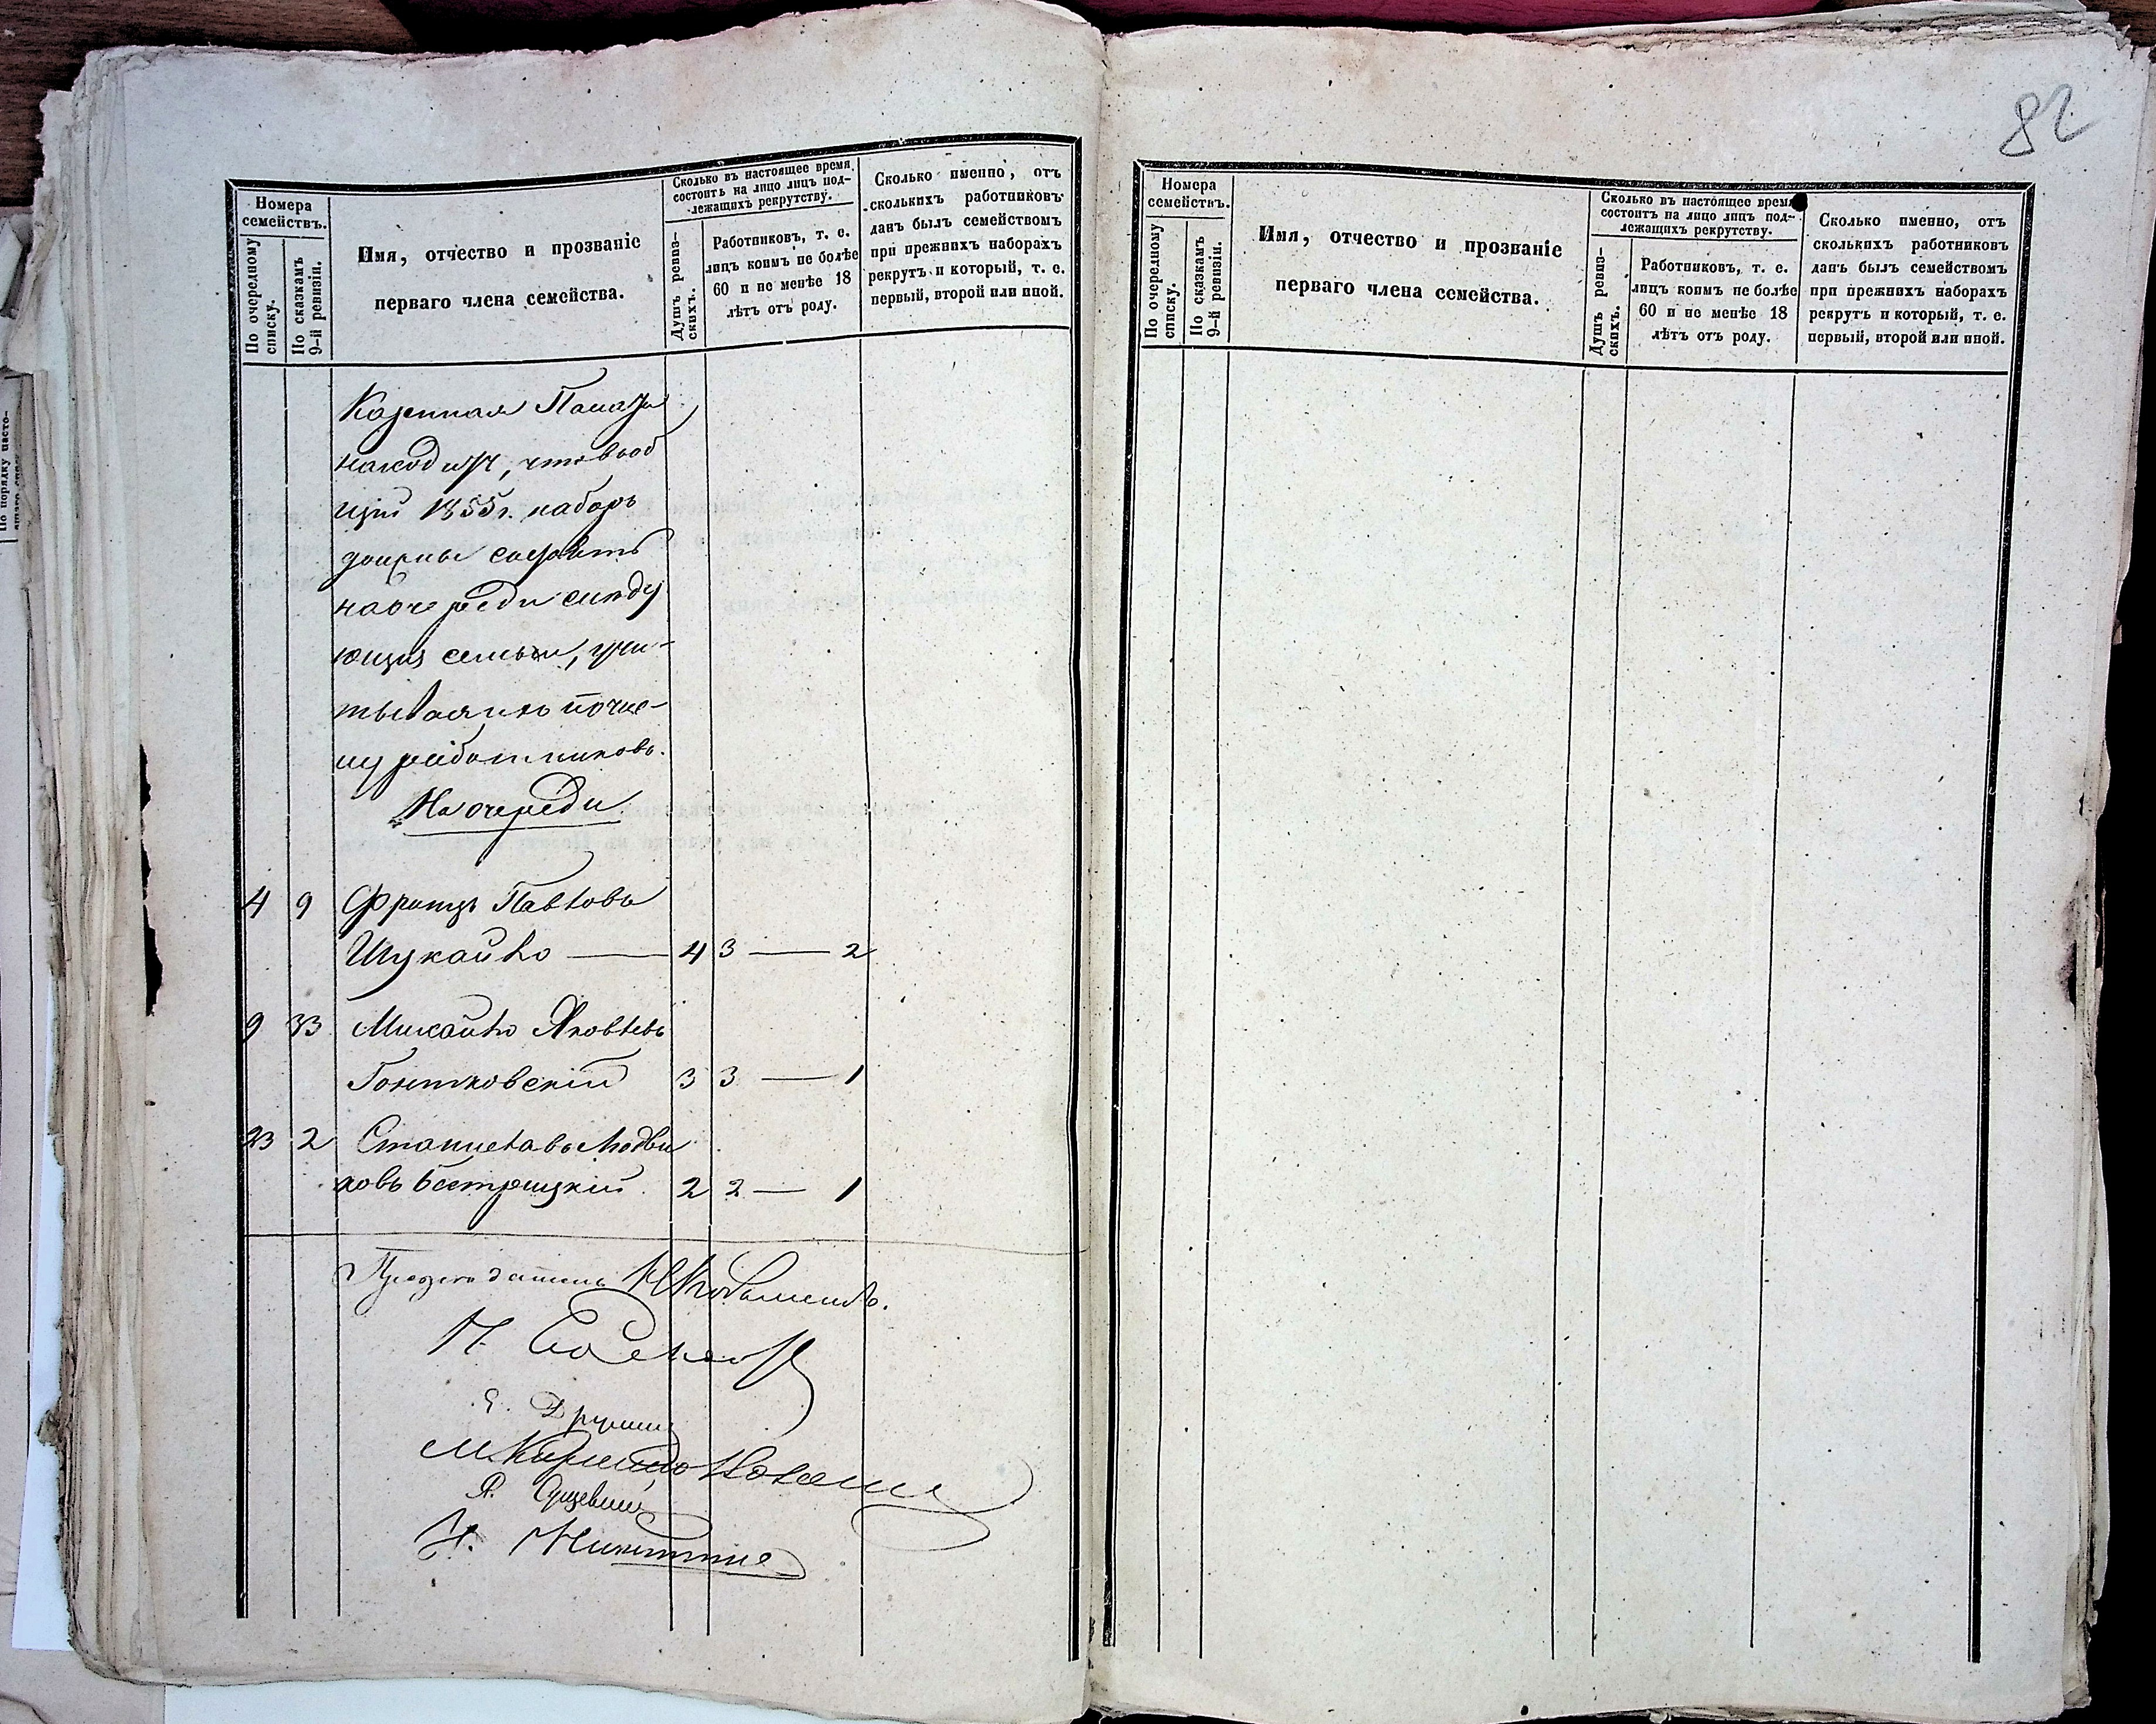 82
Номера
семействъ.
По очередному
списку.
По сказкамъ
9-й ревизіи.
Имя, отчество и прозваніе
перваго члена семейства.
Сколько въ настоящее время
состоитъ на лицо лицъ под-
лежащихъ рекрутству.
Душъ ревиз-
скихъ.
Работниковъ, т. е.
лицъ коимъ не болѣе
60 и не менѣе 18
лѣтъ отъ роду.
Сколько именно, отъ
сколькихъ работниковъ
данъ былъ семействомъ
при прежнихъ наборахъ
рекрутъ и который, т. е.
первый, второй или иной.
Казенная Палата
находитъ, что въ об
щій 1855 г. наборъ
должны состоять
на очереди слѣду
ющія семьи, учи-
тывая ихъ по чис-
лу работниковъ.
На очереди.
4 9 Францъ Павловъ
Шукайло — 4 3 — 2
9 33 Михайло Яковлевъ
Гонтковскій 3 3 — 1
23 2 Станиславъ Людви
ковъ Бестрицкій 2 2 — 1
Предсѣдатель
Номера
семействъ.
По очередному
списку.
По сказкамъ
9-й ревизіи.
Имя, отчество и прозваніе
перваго члена семейства.
Сколько въ настоящее время
состоитъ на лицо лицъ под-
лежащихъ рекрутству.
Душъ ревиз-
скихъ.
Работниковъ, т. е.
лицъ коимъ не болѣе
60 и не менѣе 18
лѣтъ отъ роду.
Сколько именно, отъ
сколькихъ работниковъ
данъ былъ семействомъ
при прежнихъ наборахъ
рекрутъ и который, т. е.
первый, второй или иной.